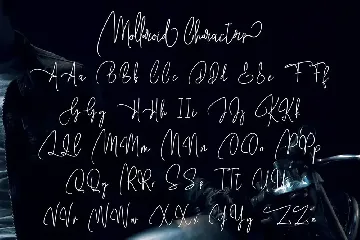 Mollaroid Characters
A A a B B b C C c D D d E E e F F f
G G g H H h I I i J J j K K k
L L l M M m N N n O O o P P p
Q Q q R R r S S s T T t U U u
V V v W W w X X x Y Y y Z Z z